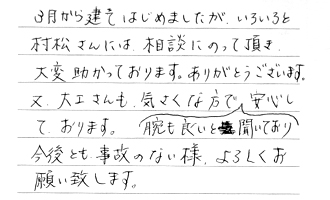 3月から建てはじめましたが、いろいろと
村松さんには、相談にのって頂き、
大変助かっております。ありがとうございます。
又、大工さんも、気さくな方で、安心し
て、おります。腕も良いと聞いており
今後とも、事故のない様、よろしくお
願い致します。